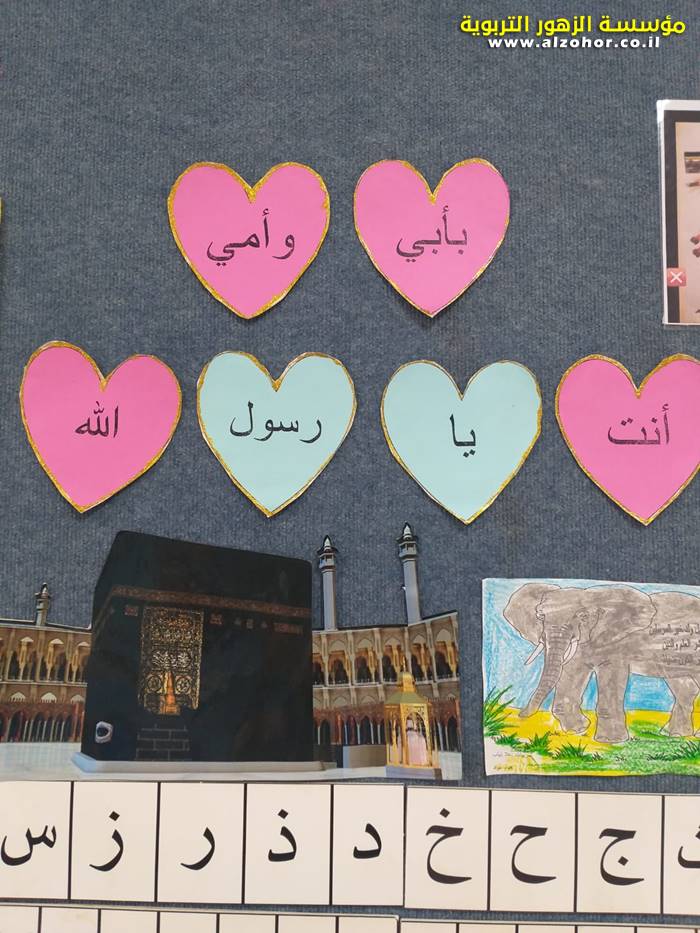 مؤسسة الزهور التربوية
www.alzohor.co.il
بأبي وأمي
أنت يا رسول الله
ج ح خ د ذ ر ز س